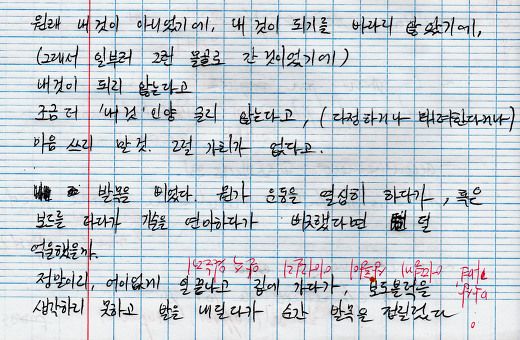 원래 내 것이 아니었기에, 내 것이 되기를 바라지 않았기에,
(그래서 일부러 그런 몰골로 간 것이었기에)
내것이 되리 않는다고
조금 더 '내 것' 인양 굴리 않는다고, (다정하거나 배려한다거나)
마음 쓰리 말 것. 그럴 가치가 없다고.
발목을 삐었다. 뭔가 운동을 열심히 하다가, 혹은
보드를 타다가 기술을 연마하다가 삐끗했다면 덜
억울했을까.
정말이리, 어이없게 일 끝나고 집에 가다가, 보도블럭을
생각하리 못하고 발을 내딛다가 순간 발목을 접질렀다